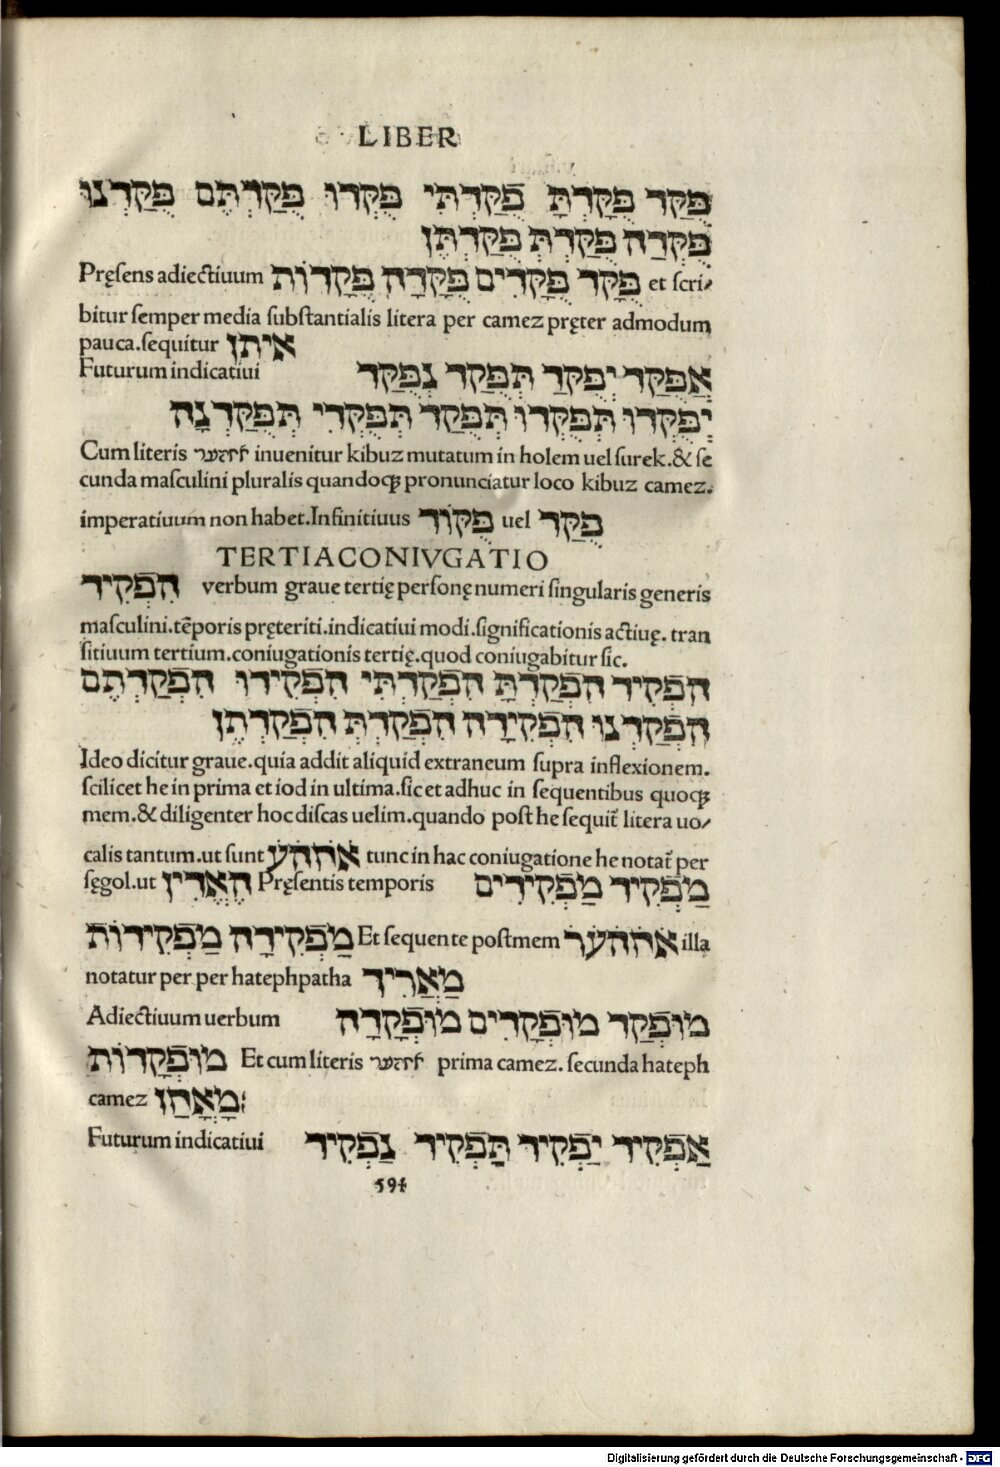 LIBER
פֻּקַּד פֻּקַּדְתָּ פֻּקַּדְתִּי פֻּקְּדוּ פֻּקַּדְתֶּם פֻּקַּדְנוּ
פֻּקְּדַה פֻּקַּדְתְּ פֻּקַּדְתֶּן
Pręsens adiectiuum פֻּקָּד פֻּקָּדִים פֻּקָּדָה פֻּקָּדוֹת et scri⸗
bitur semper media substantialis litera per camez pręter admodum
pauca.sequitur אֵיתָן
Futurum indicatiui אֲפֻקַּד יְפֻקַּד תְּפֻקַּד נְפֻקַּד
יְפֻקְּדוּ תְּפֻקְּדוּ תְּפֻקַּד תְּפֻקְּדִי תְּפֻקַּדְנָה
Cum literis inuenitur kibuz mutatum in holem uel surek.& se
cunda masculini pluralis quandoqꝫ pronunciatur loco kibuz camez.
imperatiuum non habet.Infinitiuus פֻּקּוֹד uel פֻּקַּד
TERTIA CONIVGATIO
הִפְקִיד verbum graue tertię personę numeri singularis generis
masculini.tēporis pręteriti.indicatiui modi.significationis actiuę.tran
sitiuum tertium.coniugationis tertię.quod coniugabitur sic.
הִפְקִיד הִפְקַדְתָּ הִפְקַדְתִּי הִפְקִידוּ הִפְקַדְתֶם
הִפְקַדְנוּ הִפְקִידָה הִפְקַדְתְּ הִפְקַדְתֶן
Ideo dicitur graue.quia addit aliquid extraneum supra inflexionem.
scilicet he in prima et iod in ultima.sic et adhuc in sequentibus quoqꝫ
mem.& diligenter hoc discas uelim.quando post he sequit᷑ litera uo⸗
calis tantum.ut sunt אחהע tunc in hac coniugatione he notat᷑ per
sęgol.ut הֶאֱדִין Pręsentis temporis מַפְקִיד מַפְקִידִים
מַפְקִידָה מַפְקִידוֹת Et sequente post mem אחהער illa
notatur per per hatephpatha מַאֲרִיךְ
Adiectiuum uerbum מוּפְקַד מוּפְקָדִים מוּפְקָדָה
מוּפְקָדוֹת Et cum literis prima camez. secunda hateph
camez מָאֳחַז:
Futurum indicatiui אַפְקִיד יַפְקִיד תַּפְקִיד נַפְקִיד
594
Digitalisierung gefördert durch die Deutsche Forschungsgemeinschaft - DFG